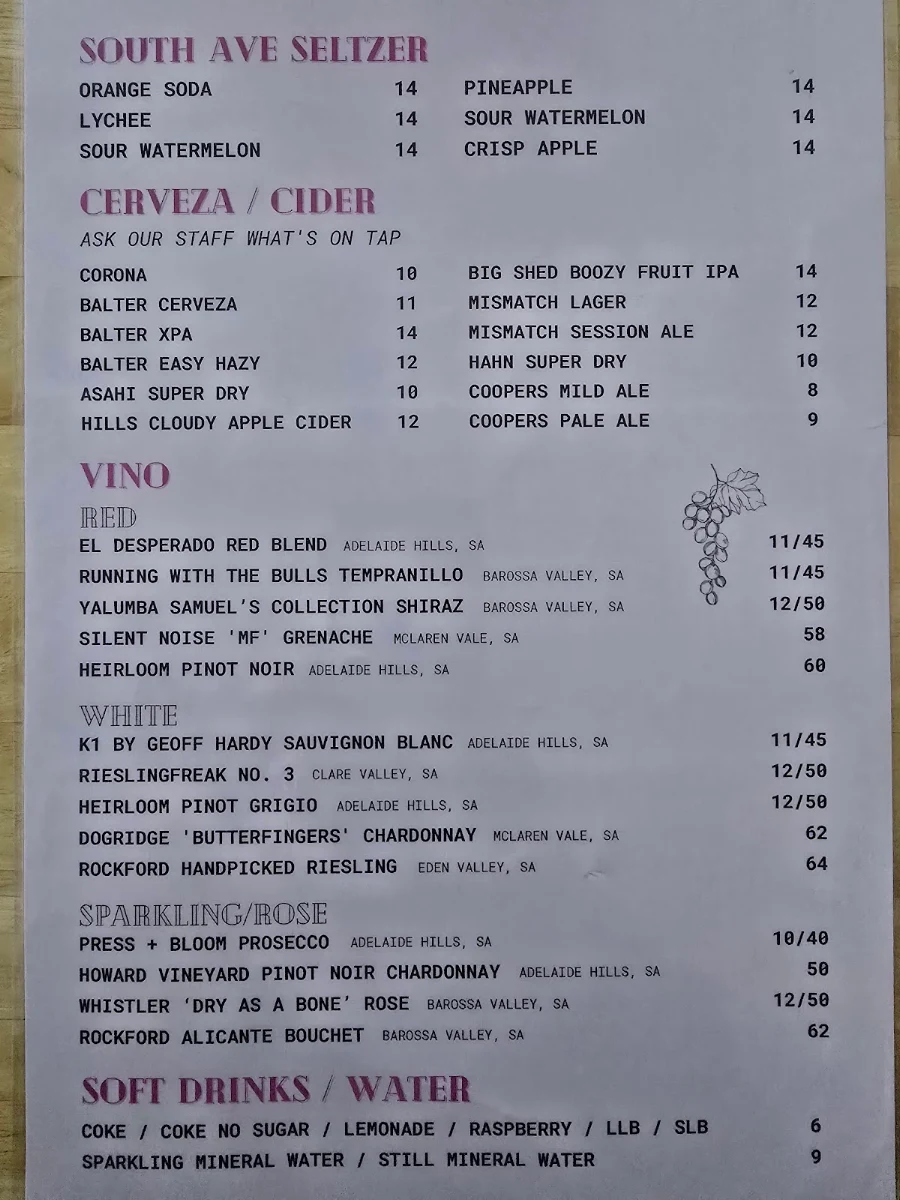 SOUTH AVE SELTZER
ORANGE SODA 14 PINEAPPLE 14
LYCHEE 14 SOUR WATERMELON 14
SOUR WATERMELON 14 CRISP APPLE 14
CERVEZA / CIDER
ASK OUR STAFF WHAT'S ON TAP
CORONA 10 BIG SHED BOOZY FRUIT IPA 14
BALTER CERVEZA 11 MISMATCH LAGER 12
BALTER XPA 14 MISMATCH SESSION ALE 12
BALTER EASY HAZY 12 HAHN SUPER DRY 10
ASAHI SUPER DRY 10 COOPERS MILD ALE 8
HILLS CLOUDY APPLE CIDER 12 COOPERS PALE ALE 9
VINO
RED
EL DESPERADO RED BLEND ADELAIDE HILLS, SA 11/45
RUNNING WITH THE BULLS TEMPRANILLO BAROSSA VALLEY, SA 11/45
YALUMBA SAMUEL'S COLLECTION SHIRAZ BAROSSA VALLEY, SA 12/50
SILENT NOISE 'MF' GRENACHE MCLAREN VALE, SA 58
HEIRLOOM PINOT NOIR ADELAIDE HILLS, SA 60
WHITE
K1 BY GEOFF HARDY SAUVIGNON BLANC ADELAIDE HILLS, SA 11/45
RIESLINGFREAK NO. 3 CLARE VALLEY, SA 12/50
HEIRLOOM PINOT GRIGIO ADELAIDE HILLS, SA 12/50
DOGRIDGE 'BUTTERFINGERS' CHARDONNAY MCLAREN VALE, SA 62
ROCKFORD HANDPICKED RIESLING EDEN VALLEY, SA 64
SPARKLING/ROSE
PRESS + BLOOM PROSECCO ADELAIDE HILLS, SA 10/40
HOWARD VINEYARD PINOT NOIR CHARDONNAY ADELAIDE HILLS, SA 50
WHISTLER ‘DRY AS A BONE’ ROSE BAROSSA VALLEY, SA 12/50
ROCKFORD ALICANTE BOUCHET BAROSSA VALLEY, SA 62
SOFT DRINKS / WATER
COKE / COKE NO SUGAR / LEMONADE / RASPBERRY / LLB / SLB 6
SPARKLING MINERAL WATER / STILL MINERAL WATER 9